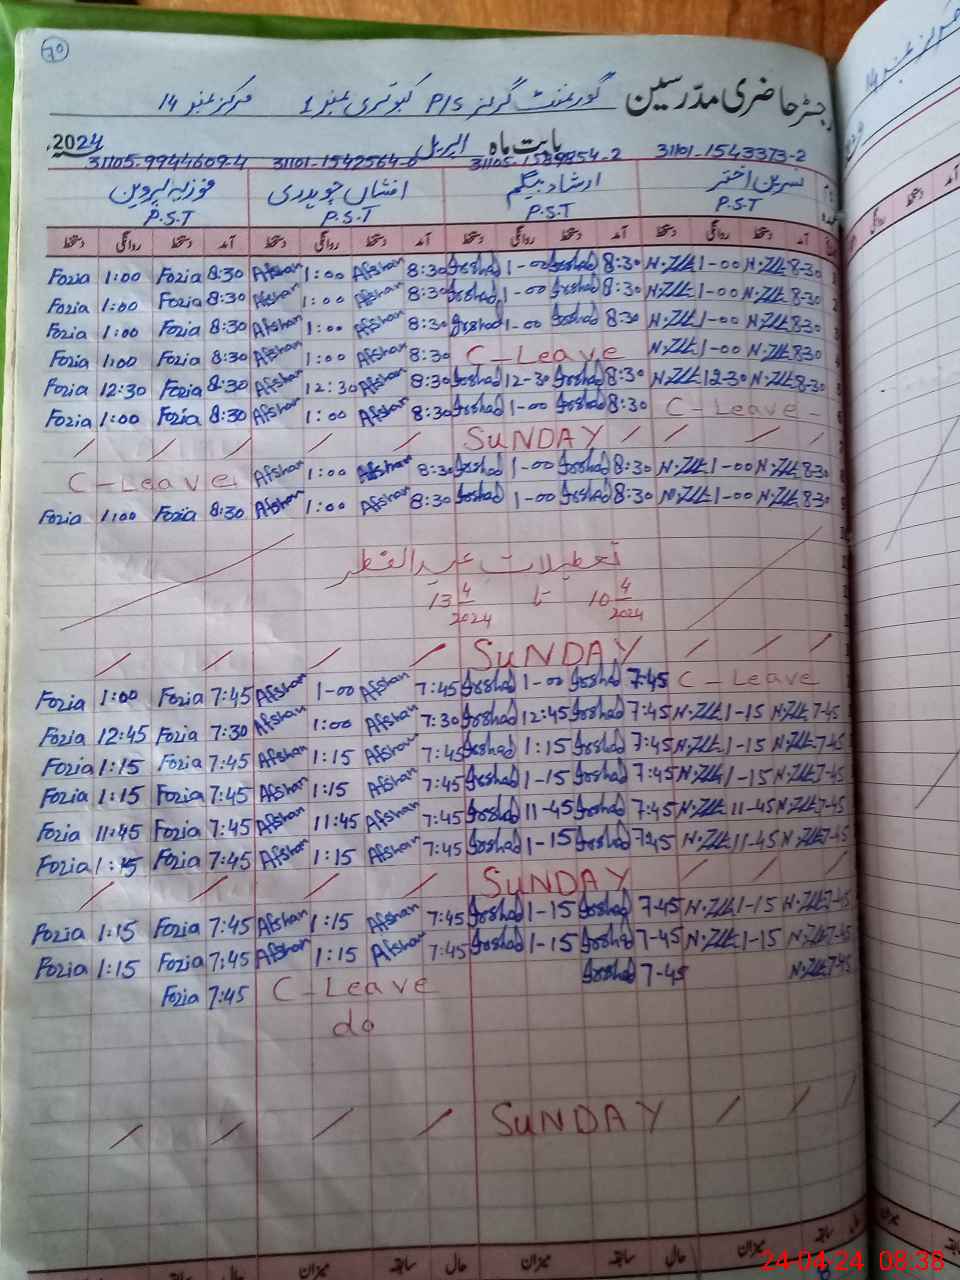 70
رجسٹر حاضری مدرّسین گورنمنٹ گرلز P/S کبوتری نمبر 1 مرکز نمبر 14
بابت ماہ اپریل 2024
31101-1543373-2 31105-1539854-2 31101-1542564-0 31105-9944609-4
نسرین اختر ارشاد بیگم افشاں چوہدری فوزیہ پروین
P.S.T P.S.T P.S.T P.S.T
آمد دستخط روانگی دستخط آمد دستخط روانگی دستخط آمد دستخط روانگی دستخط آمد دستخط روانگی دستخط
Fozia 1:00 Fozia 8:30 Afshan 1:00 Afshan 8:30 Irshad 1-00 Irshad 8:30 1-00 8-30
Fozia 1:00 Fozia 8:30 Afshan 1:00 Afshan 8:30 Irshad 1-00 Irshad 8:30 1-00 8-30
Fozia 1:00 Fozia 8:30 Afshan 1:00 Afshan 8:30 Irshad 1-00 Irshad 8:30 1-00 8-30
Fozia 1:00 Fozia 8:30 Afshan 1:00 Afshan 8:30 C-Leave 1-00 8-30
Fozia 12:30 Fozia 8:30 Afshan 12:30 Afshan 8:30 Irshad 12-30 Irshad 8:30 12-30 8-30
Fozia 1:00 Fozia 8:30 Afshan 1:00 Afshan 8:30 Irshad 1-00 Irshad 8:30 C-Leave-
SUNDAY
C-Leave Afshan 1:00 Afshan 8:30 Irshad 1-00 Irshad 8:30 1-00 8-30
Fozia 1:00 Fozia 8:30 Afshan 1:00 Afshan 8:30 Irshad 1-00 Irshad 8:30 1-00 8-30
تعطیلات عیدالفطر
10 4/2024 تا 13 4/2024
SUNDAY
Fozia 1:00 Fozia 7:45 Afshan 1-00 Afshan 7:45 Irshad 1-00 Irshad 7:45 C-Leave
Fozia 12:45 Fozia 7:30 Afshan 1:00 Afshan 7:30 Irshad 12:45 Irshad 7:45 1-15 7-45
Fozia 1:15 Fozia 7:45 Afshan 1:15 Afshan 7:45 Irshad 1:15 Irshad 7:45 1-15 7-45
Fozia 1:15 Fozia 7:45 Afshan 1:15 Afshan 7:45 Irshad 1-15 Irshad 7:45 1-15 7-45
Fozia 11:45 Fozia 7:45 Afshan 11:45 Afshan 7:45 Irshad 11-45 Irshad 7:45 11-45 7-45
Fozia 1:15 Fozia 7:45 Afshan 1:15 Afshan 7:45 Irshad 1-15 Irshad 7:45 11-45 7-45
SUNDAY
Fozia 1:15 Fozia 7:45 Afshan 1:15 Afshan 7:45 Irshad 1-15 Irshad 7-45 1-15 7-45
Fozia 1:15 Fozia 7:45 Afshan 1:15 Afshan 7:45 Irshad 1-15 Irshad 7-45 1-15 7-45
Fozia 7:45 C-Leave Irshad 7-45 7-45
do
SUNDAY
حال سابقہ میزان حال سابقہ میزان حال سابقہ
24-04-24 08:38